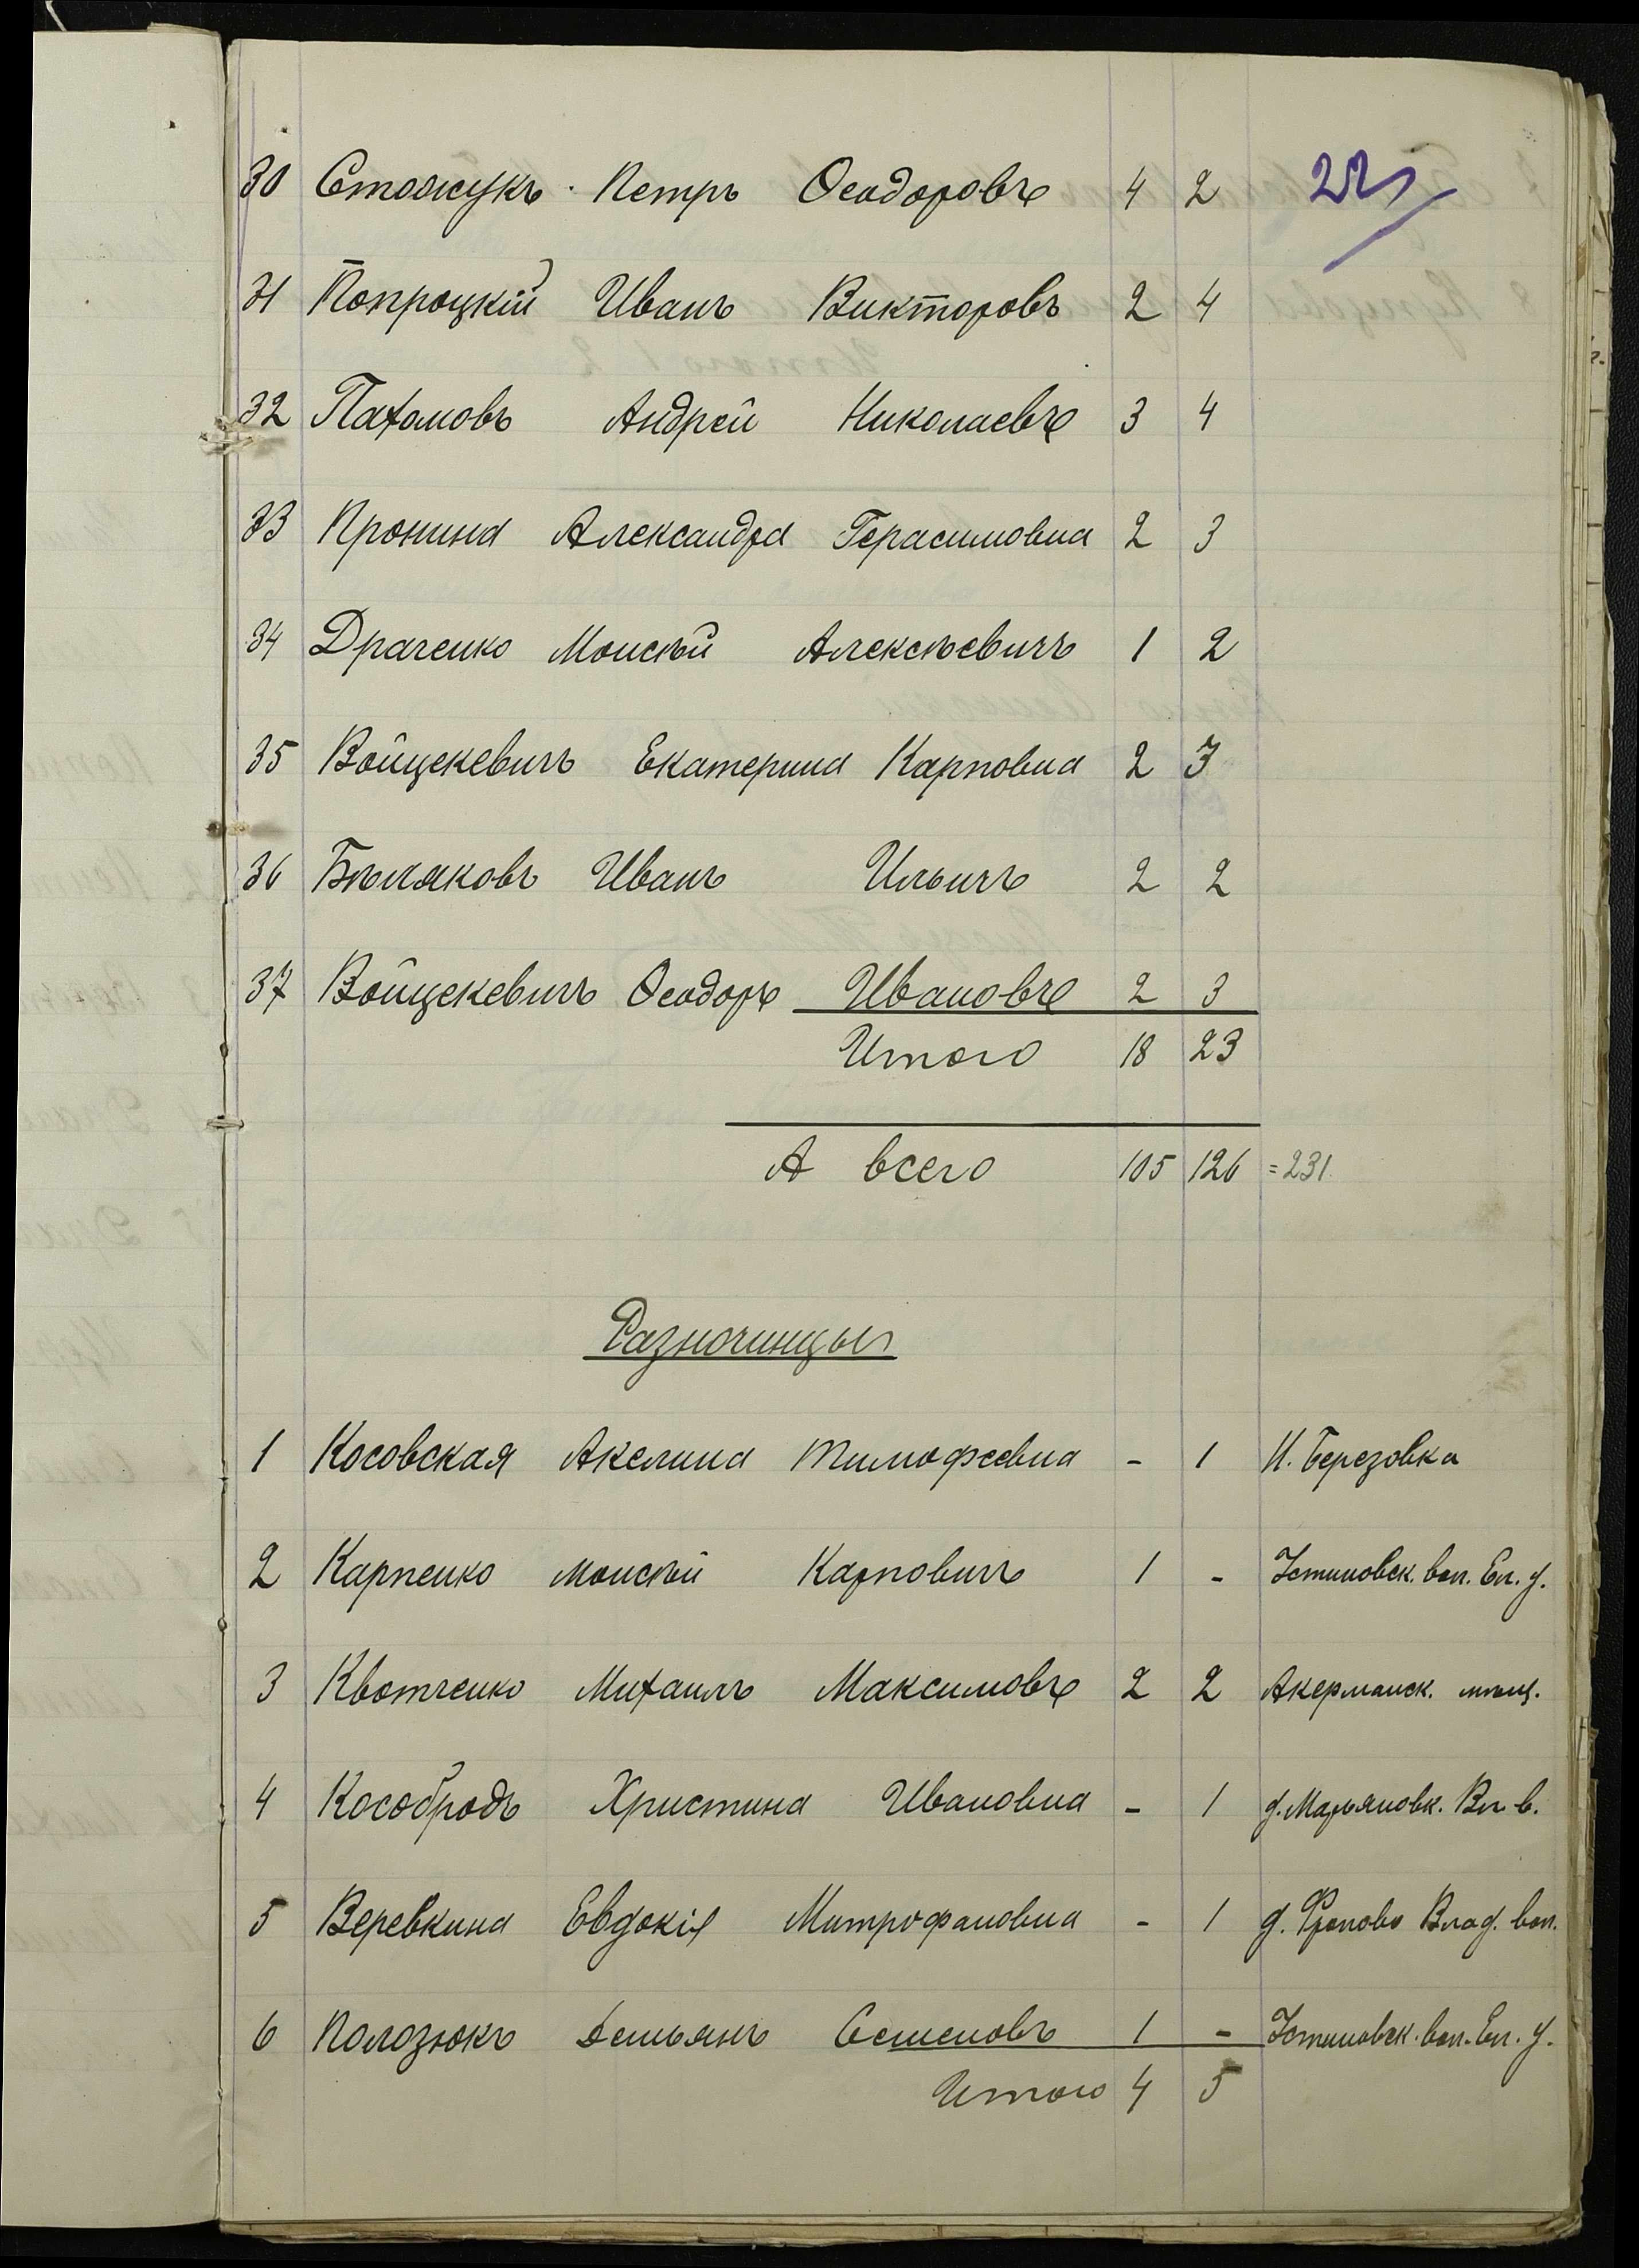 30 Стожукъ Петръ Ѳеодоровъ 4 2 22
31 Попроцкій Иванъ Викторовъ 2 4
32 Пахомовъ Андрей Николаевъ 3 4
33 Пронина Александра Герасимовна 2 3
34 Драченко Моисѣй Алексѣевичъ 1 2
35 Войцекевичъ Екатерина Карповна 2 3
36 Бѣляковъ Иванъ Ильичъ 2 2
37 Войцекевичъ Ѳеодоръ Ивановъ 2 3
Итого 18 23
А всего 105 126 =231.
Разночинцы
1 Косовская Акелина Тимофеевна - 1 И. Березовка
2 Карпенко Моисѣй Карповичъ 1 - Устиновск. вол. Ел. у.
3 Квотченко Михаилъ Максимовъ 2 2 Акерманск. мѣщ.
4 Кособродъ Христина Ивановна - 1 д. Марьяновк. Вл. в.
5 Веревкина Евдокія Митрофановна - 1 д. Фролово Влад. вол.
6 Полозюкъ Демьянъ Семеновъ 1 - Устиновск. вол. Ел. у.
Итого 4 5